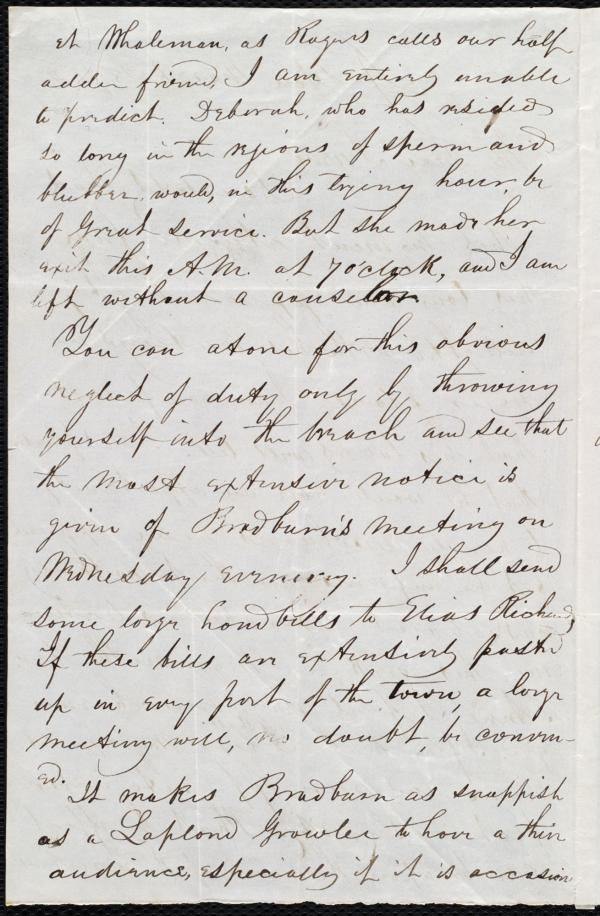 et Whaleman, as Rogers calls our half
adder friend, I am entirely unable
to predict. Deborah, who has resided
so long in the regions of sperm and
blubber, would, in this trying hour, be
of great service. But she made her
exit this A.M. at 7 o'clock, and I am
left without a counsellor.
You can atone for this obvious
neglect of duty only by throwing
yourself into the breach and see that
the most extensive notice is
given of Bradburn's meeting on
Wednesday evening. I shall send
some large handbills to Elias Richards
If these bills are extensively pasted
up in every part of the town, a large
meeting will, no doubt, be conven-
ed.
It makes Bradburn as snappish
as a Lapland Growler to have a thin
audience, especially if it is occasion